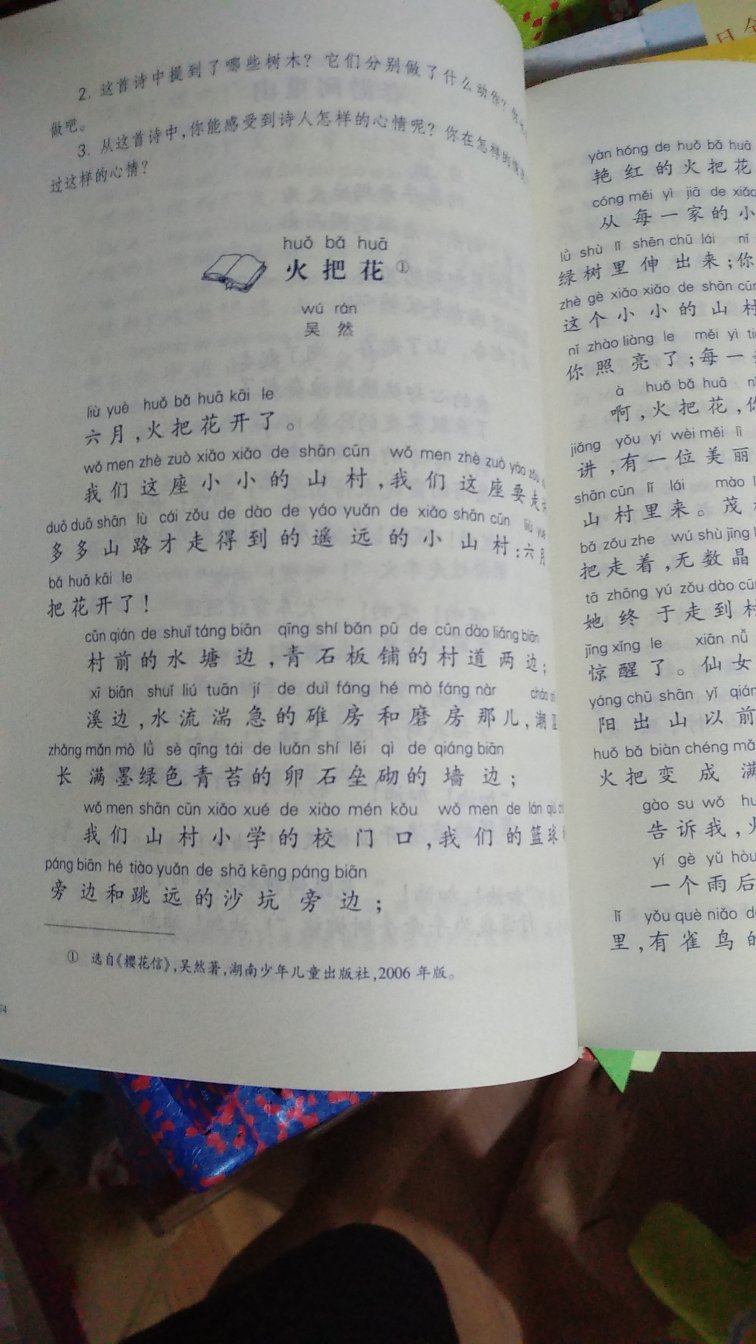 2. 这首诗中提到了哪些树木？它们分别做了什么动作？
做吧。
3. 从这首诗中,你能感受到诗人怎样的心情呢？你在怎样的
过这样的心情？
huǒ bǎ huā
火把花①
wú rán
吴然
liù yuè huǒ bǎ huā kāi le
六月,火把花开了。
wǒ men zhè zuò xiǎo xiǎo de shān cūn wǒ men zhè zuò yào zǒu
我们这座小小的山村,我们这座要走
duō duō shān lù cái zǒu de dào de yáo yuǎn de xiǎo shān cūn liù yuè
多多山路才走得到的遥远的小山村;六月
bǎ huā kāi le
把花开了！
cūn qián de shuǐ táng biān qīng shí bǎn pū de cūn dào liǎng biān
村前的水塘边,青石板铺的村道两边;
xī biān shuǐ liú tuān jí de duì fáng hé mò fáng nàr
溪边,水流湍急的碓房和磨房那儿,潮
zhǎng mǎn mò lǜ sè qīng tái de luǎn shí lěi qì de qiáng biān
长满墨绿色青苔的卵石垒砌的墙边;
wǒ men shān cūn xiǎo xué de xiào mén kǒu wǒ men de lán qiú
我们山村小学的校门口,我们的篮球
páng biān hé tiào yuǎn de shā kēng páng biān
旁边和跳远的沙坑旁边;
① 选自《樱花信》,吴然著,湖南少年儿童出版社,2006年版。
yàn hóng de huǒ bǎ huā
艳红的火把花
cóng měi yì jiā de xiǎo
从每一家的小
lǜ shù lǐ shēn chū lái nǐ
绿树里伸出来;你
zhè gè xiǎo xiǎo de shān cūn
这个小小的山村
nǐ zhào liàng le měi yì
你照亮了;每一
à huǒ bǎ huā
啊,火把花,你
jiǎng yǒu yí wèi měi lì
讲,有一位美丽
shān cūn lǐ lái mào
山村里来。茂
bǎ zǒu zhe wú shù jīng
把走着,无数晶
tā zhōng yú zǒu dào cūn
她终于走到村
jīng xǐng le xiān nǚ
惊醒了。仙女
yáng chū shān yǐ qián
阳出山以前
huǒ bǎ biàn chéng mǎn
火把变成满
gào su wǒ
告诉我,火
yí gè yǔ hòu
一个雨后
lǐ yǒu què niǎo
里,有雀鸟的